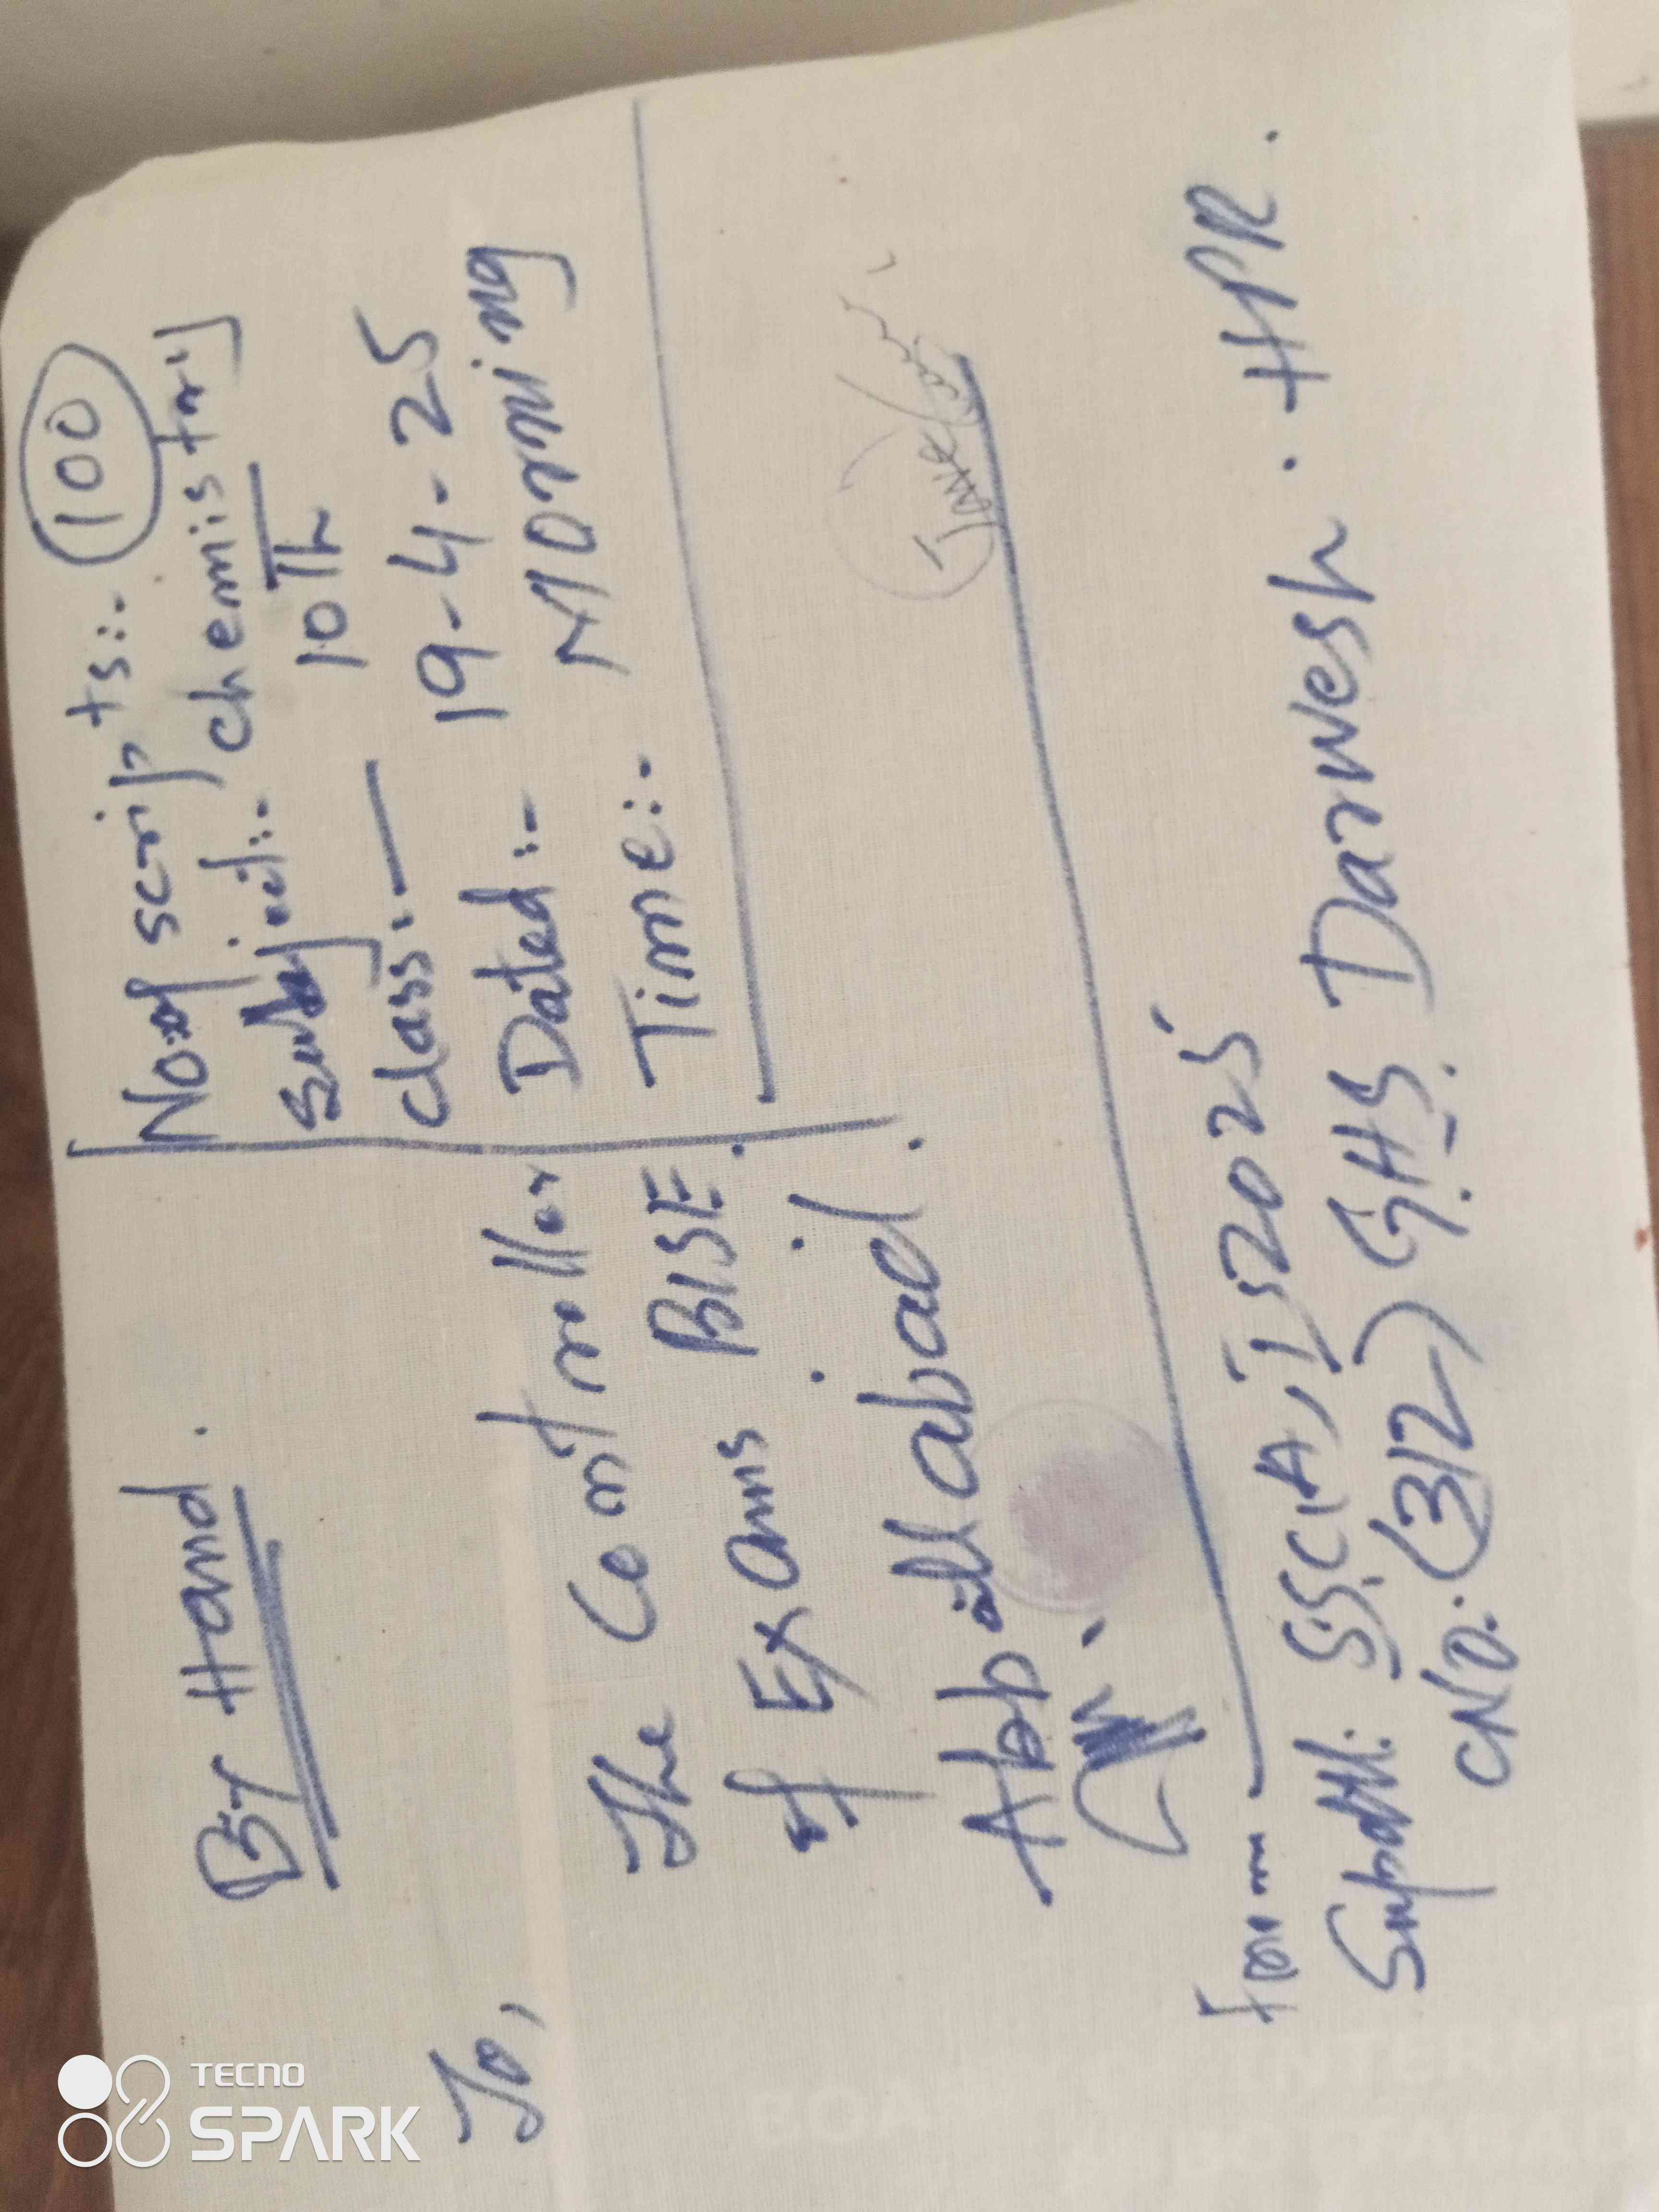 By Hand.
No of scripts:- 100
Subject:- chemistry
class:- 10Th
Dated:- 19-4-25
Time:- Morning
To,
The Controller
of Exams BISE.
Abbottabad.
From
Supdtt: SSC(A), I, 2025
CNo. (312) G.H.S Darwesh. HPR.
TECNO
SPARK